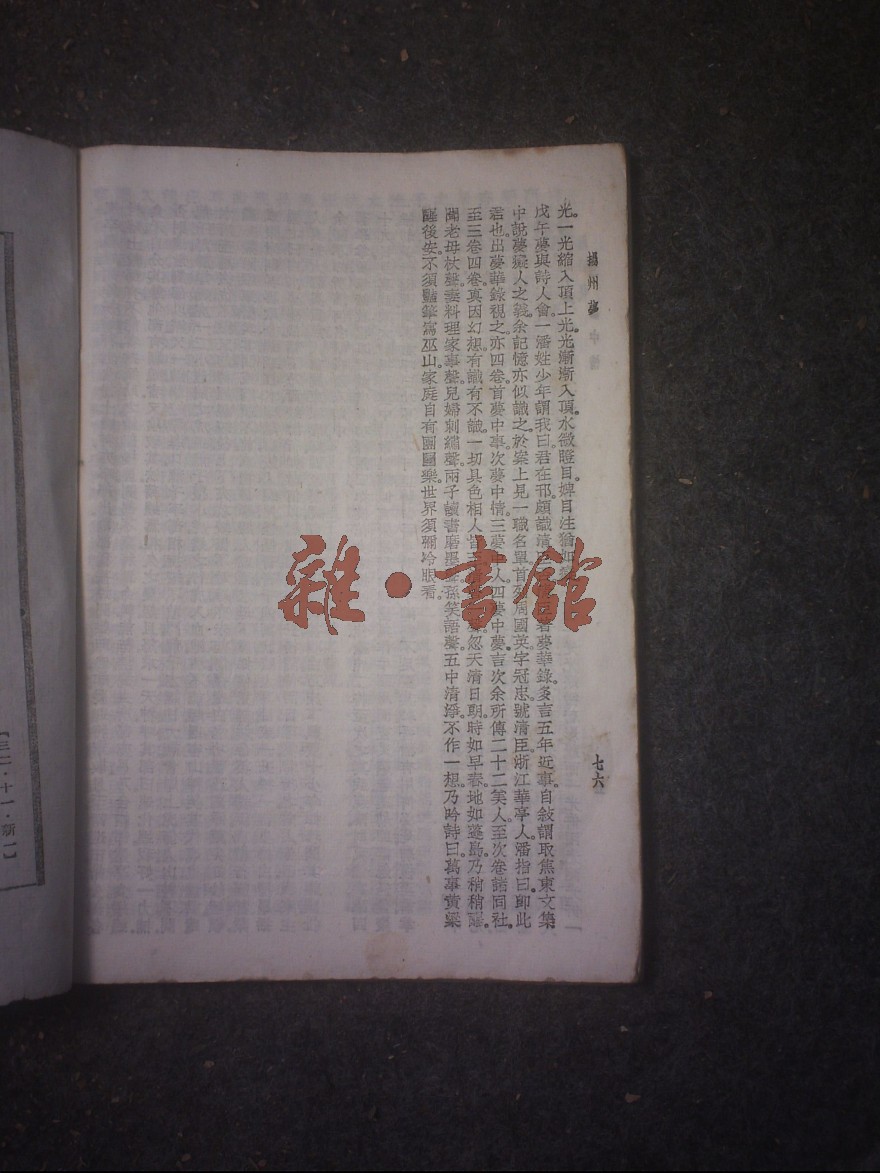 揚州夢
七六
光。一光縮入頂上光。光漸漸入頂。水微瞪目。婢目注猶如
戊午夢與詩人會。一潘姓少年謂我曰。君在邗。頗識清
著夢華錄。多言五年近事。自敍謂取焦東文集
中說夢癡人之義。余記憶亦似識之。於案上見一職名單。首列周國英。字冠忠。號清臣。浙江華亭人。潘指曰。即此
君也。出夢華錄視之。亦四卷。首夢中事。次夢中情。三夢中人。四夢中夢。言次余所傳二十二美人。至次卷諸同社。
至三卷四卷。真因幻想。有識有不識。一切具色相人皆
忽天清日朗。時如早春。地如蓬島。乃稍稍醒。
聞老母杖聲。妻料理家事聲。兒婦刺繡聲。兩子讀書磨墨聲。孫笑語聲。五中清淨。不作一想。乃吟詩曰。萬事黃粱
醒後安。不須豔筆寫巫山。家庭自有團圓樂。世界須彌冷眼看。
雜·書館
【三二·十一·新一】